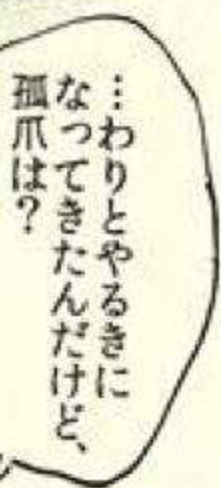 …わりとやるきに
なってきたんだけど、
孤爪は？